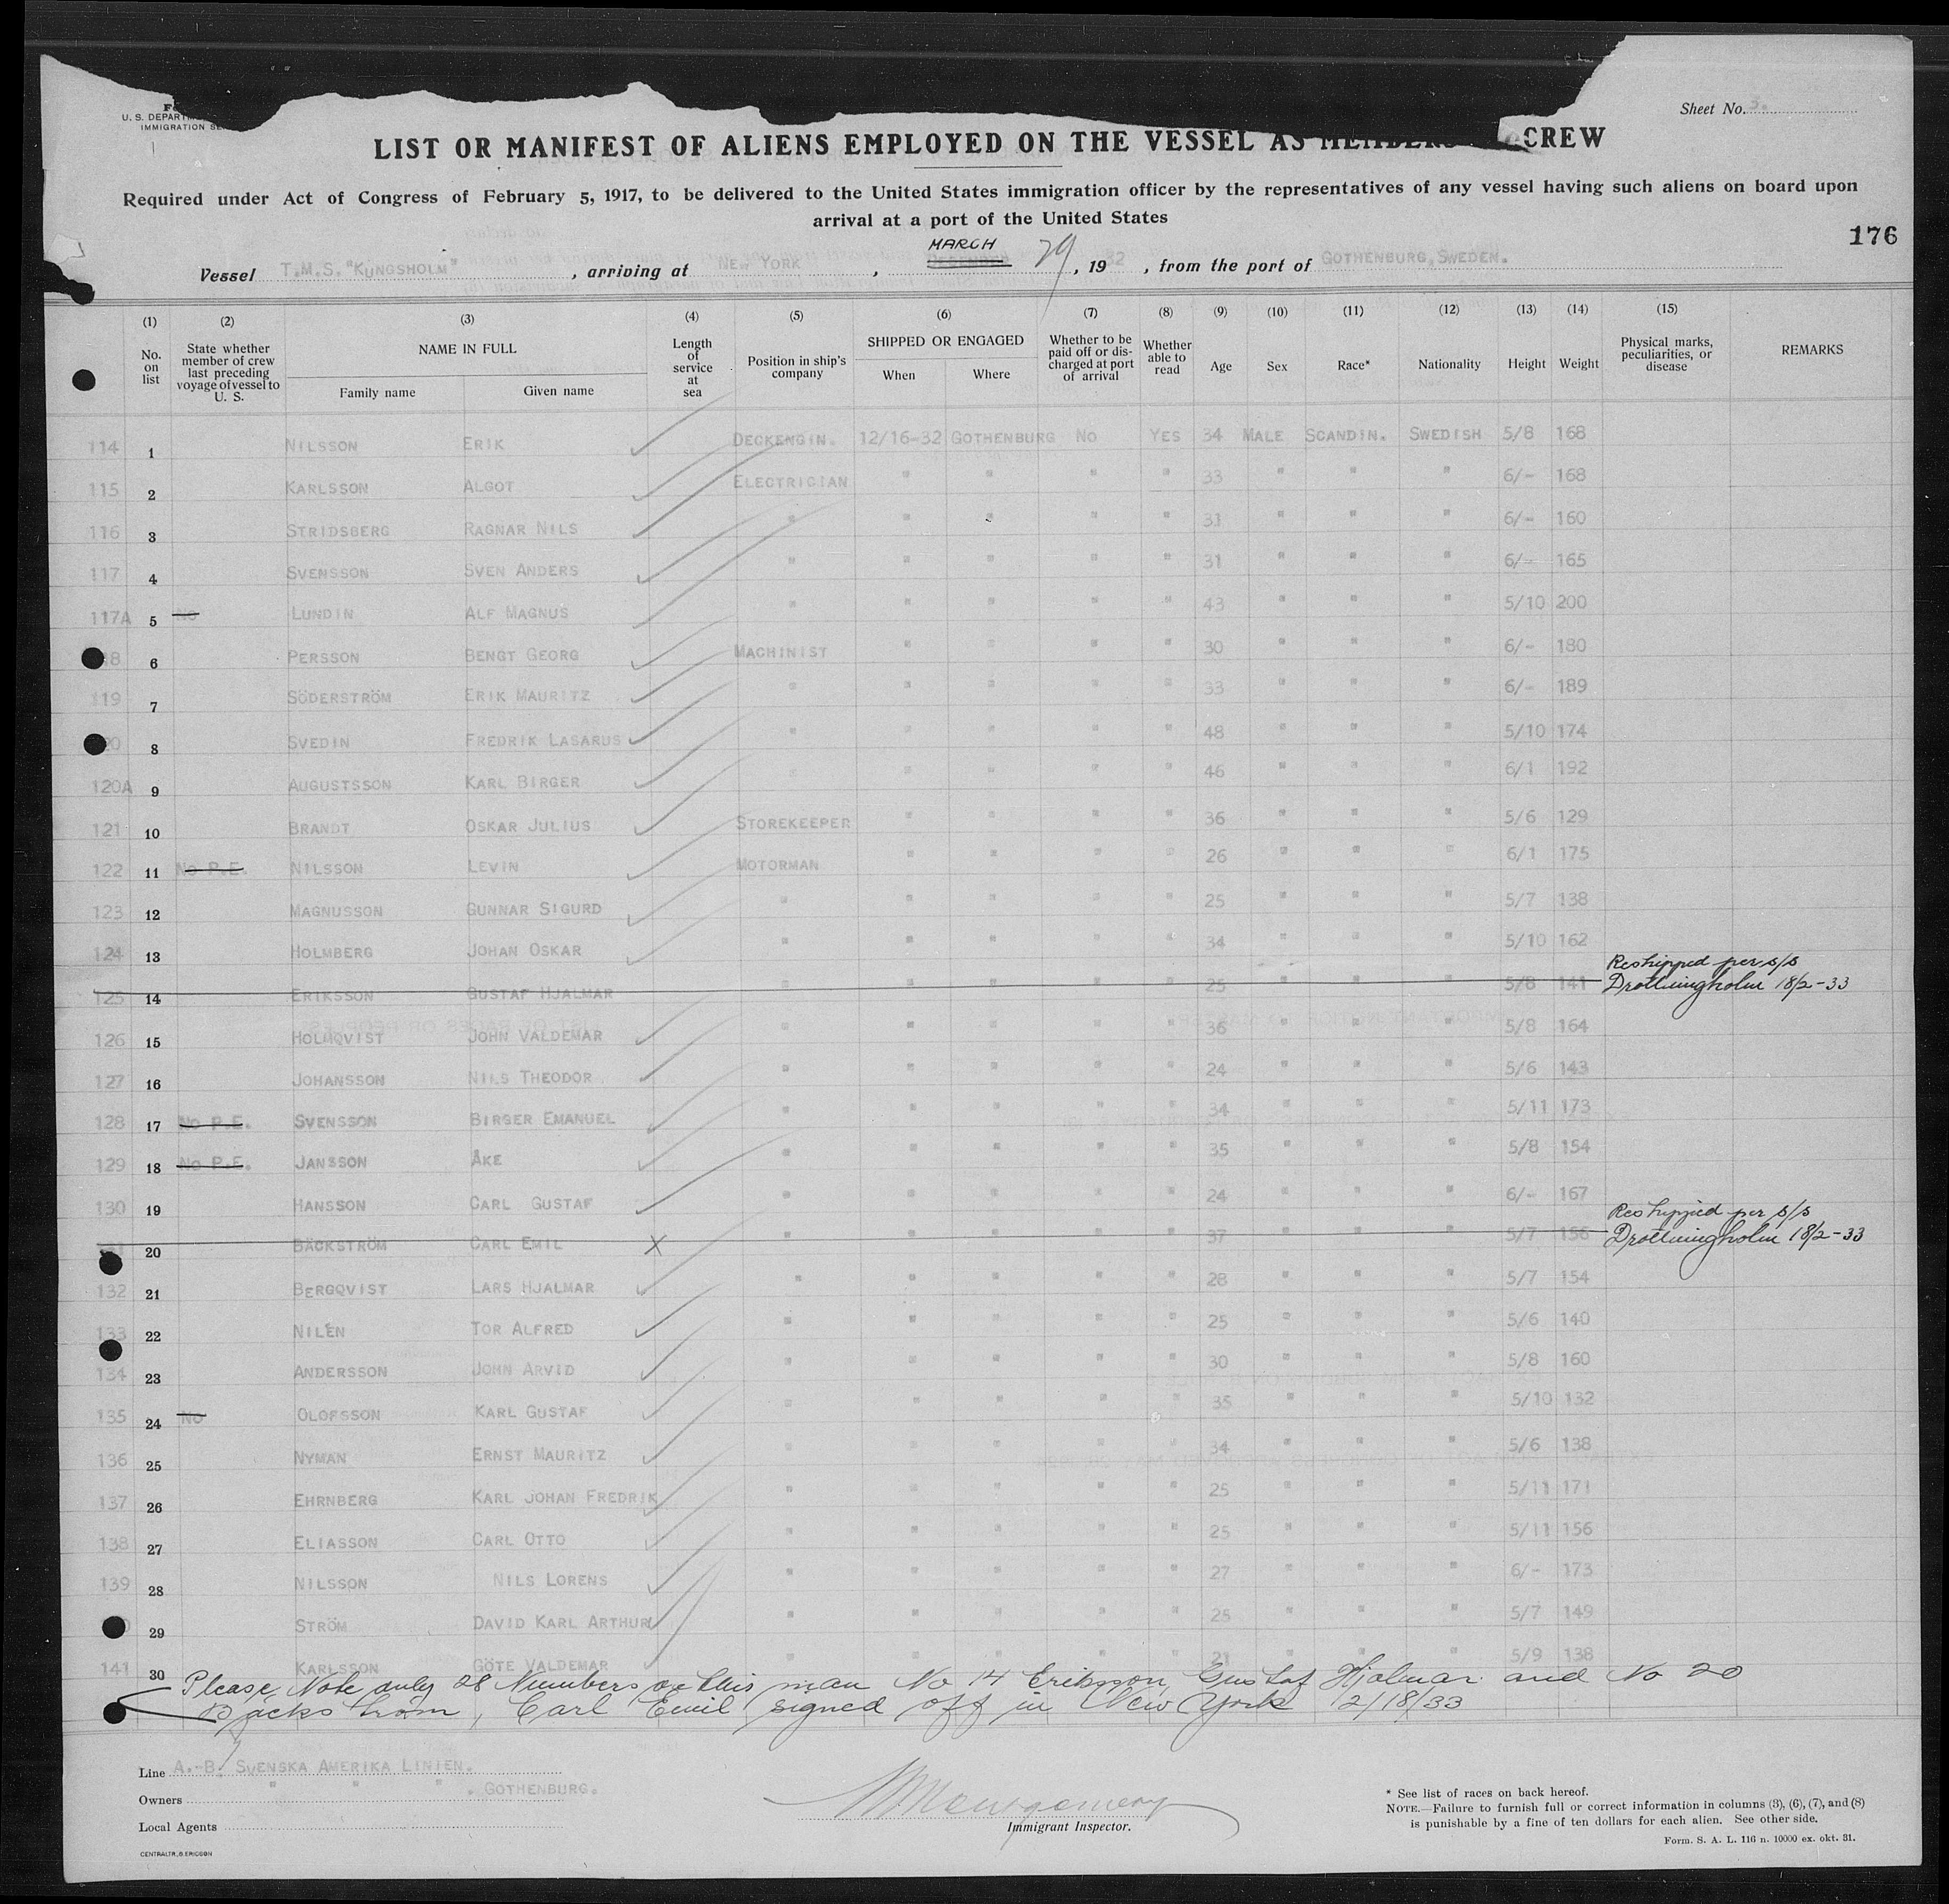 U. S. DEPART
IMMIGRATION SE
Sheet No. 3.
LIST OR MANIFEST OF ALIENS EMPLOYED ON THE VESSEL AS MEMBERS CREW
Required under Act of Congress of February 5, 1917, to be delivered to the United States immigration officer by the representatives of any vessel having such aliens on board upon
arrival at a port of the United States
176
MARCH
Vessel T.M.S. "KUNGSHOLM", arriving at NEW YORK, DECEMBER 29, 1932, from the port of GOTHENBURG, SWEDEN.
(1) (2) (3) (4) (5) (6) (7) (8) (9) (10) (11) (12) (13) (14) (15)
No. on list
State whether member of crew last preceding voyage of vessel to U. S.
NAME IN FULL
Family name Given name
Length of service at sea
Position in ship's company
SHIPPED OR ENGAGED
When Where
Whether to be paid off or discharged at port of arrival
Whether able to read
Age Sex Race* Nationality Height Weight
Physical marks, peculiarities, or disease
REMARKS
114 1 NILSSON ERIK DECKENGIN. 12/16-32 GOTHENBURG NO YES 34 MALE SCANDIN. SWEDISH 5/8 168
115 2 KARLSSON ALGOT ELECTRICIAN " " " " 33 " " " 6/- 168
116 3 STRIDSBERG RAGNAR NILS " " " " " 31 " " " 6/- 160
117 4 SVENSSON SVEN ANDERS " " " " " 31 " " " 6/- 165
117A 5 NO LUNDIN ALF MAGNUS " " " " " 43 " " " 5/10 200
8 6 PERSSON BENGT GEORG MACHINIST " " " " 30 " " " 6/- 180
119 7 SÖDERSTRÖM ERIK MAURITZ " " " " " 33 " " " 6/- 189
0 8 SVEDIN FREDRIK LASARUS " " " " " 48 " " " 5/10 174
120A 9 AUGUSTSSON KARL BIRGER " " " " " 46 " " " 6/1 192
121 10 BRANDT OSKAR JULIUS STOREKEEPER " " " " 36 " " " 5/6 129
122 11 NO P.E. NILSSON LEVIN MOTORMAN " " " " 26 " " " 6/1 175
123 12 MAGNUSSON GUNNAR SIGURD " " " " " 25 " " " 5/7 138
124 13 HOLMBERG JOHAN OSKAR " " " " " 34 " " " 5/10 162
125 14 ERIKSSON GUSTAF HJALMAR " " " " " 25 " " " 5/8 141 Reshipped per s/s Drottningholm 18/2-33
126 15 HOLMQVIST JOHN VALDEMAR " " " " " 36 " " " 5/8 164
127 16 JOHANSSON NILS THEODOR " " " " " 24 " " " 5/6 143
128 17 NO P.E. SVENSSON BIRGER EMANUEL " " " " " 34 " " " 5/11 173
129 18 NO P.E. JANSSON ÅKE " " " " " 35 " " " 5/8 154
130 19 HANSSON CARL GUSTAF " " " " " 24 " " " 6/- 167
20 BÄCKSTRÖM CARL EMIL X " " " " " 37 " " " 5/7 156 Reshipped per s/s Drottningholm 18/2-33
132 21 BERGQVIST LARS HJALMAR " " " " " 28 " " " 5/7 154
133 22 NILÉN TOR ALFRED " " " " " 25 " " " 5/6 140
134 23 ANDERSSON JOHN ARVID " " " " " 30 " " " 5/8 160
135 24 NO OLOFSSON KARL GUSTAF " " " " " 35 " " " 5/10 132
136 25 NYMAN ERNST MAURITZ " " " " " 34 " " " 5/6 138
137 26 EHRNBERG KARL JOHAN FREDRIK " " " " " 25 " " " 5/11 171
138 27 ELIASSON CARL OTTO " " " " " 25 " " " 5/11 156
139 28 NILSSON NILS LORENS " " " " " 27 " " " 6/- 173
29 STRÖM DAVID KARL ARTHUR " " " " " 25 " " " 5/7 149
141 30 KARLSSON GÖTE VALDEMAR " " " " " 21 " " " 5/9 138
Please Note only 28 Numbers on this man No 14 Eriksson, Gustaf Hjalmar and No 20
Bäckström, Carl Emil signed off in New York 2/18/33
Line A.-B. SVENSKA AMERIKA LINIEN.
Owners " " " . GOTHENBURG.
Local Agents
Montgomery
Immigrant Inspector.
* See list of races on back hereof.
NOTE.—Failure to furnish full or correct information in columns (3), (6), (7), and (8)
is punishable by a fine of ten dollars for each alien. See other side.
Form. S. A. L. 116 n. 10000 ex. okt. 31.
CENTRALTR., G. ERICSON